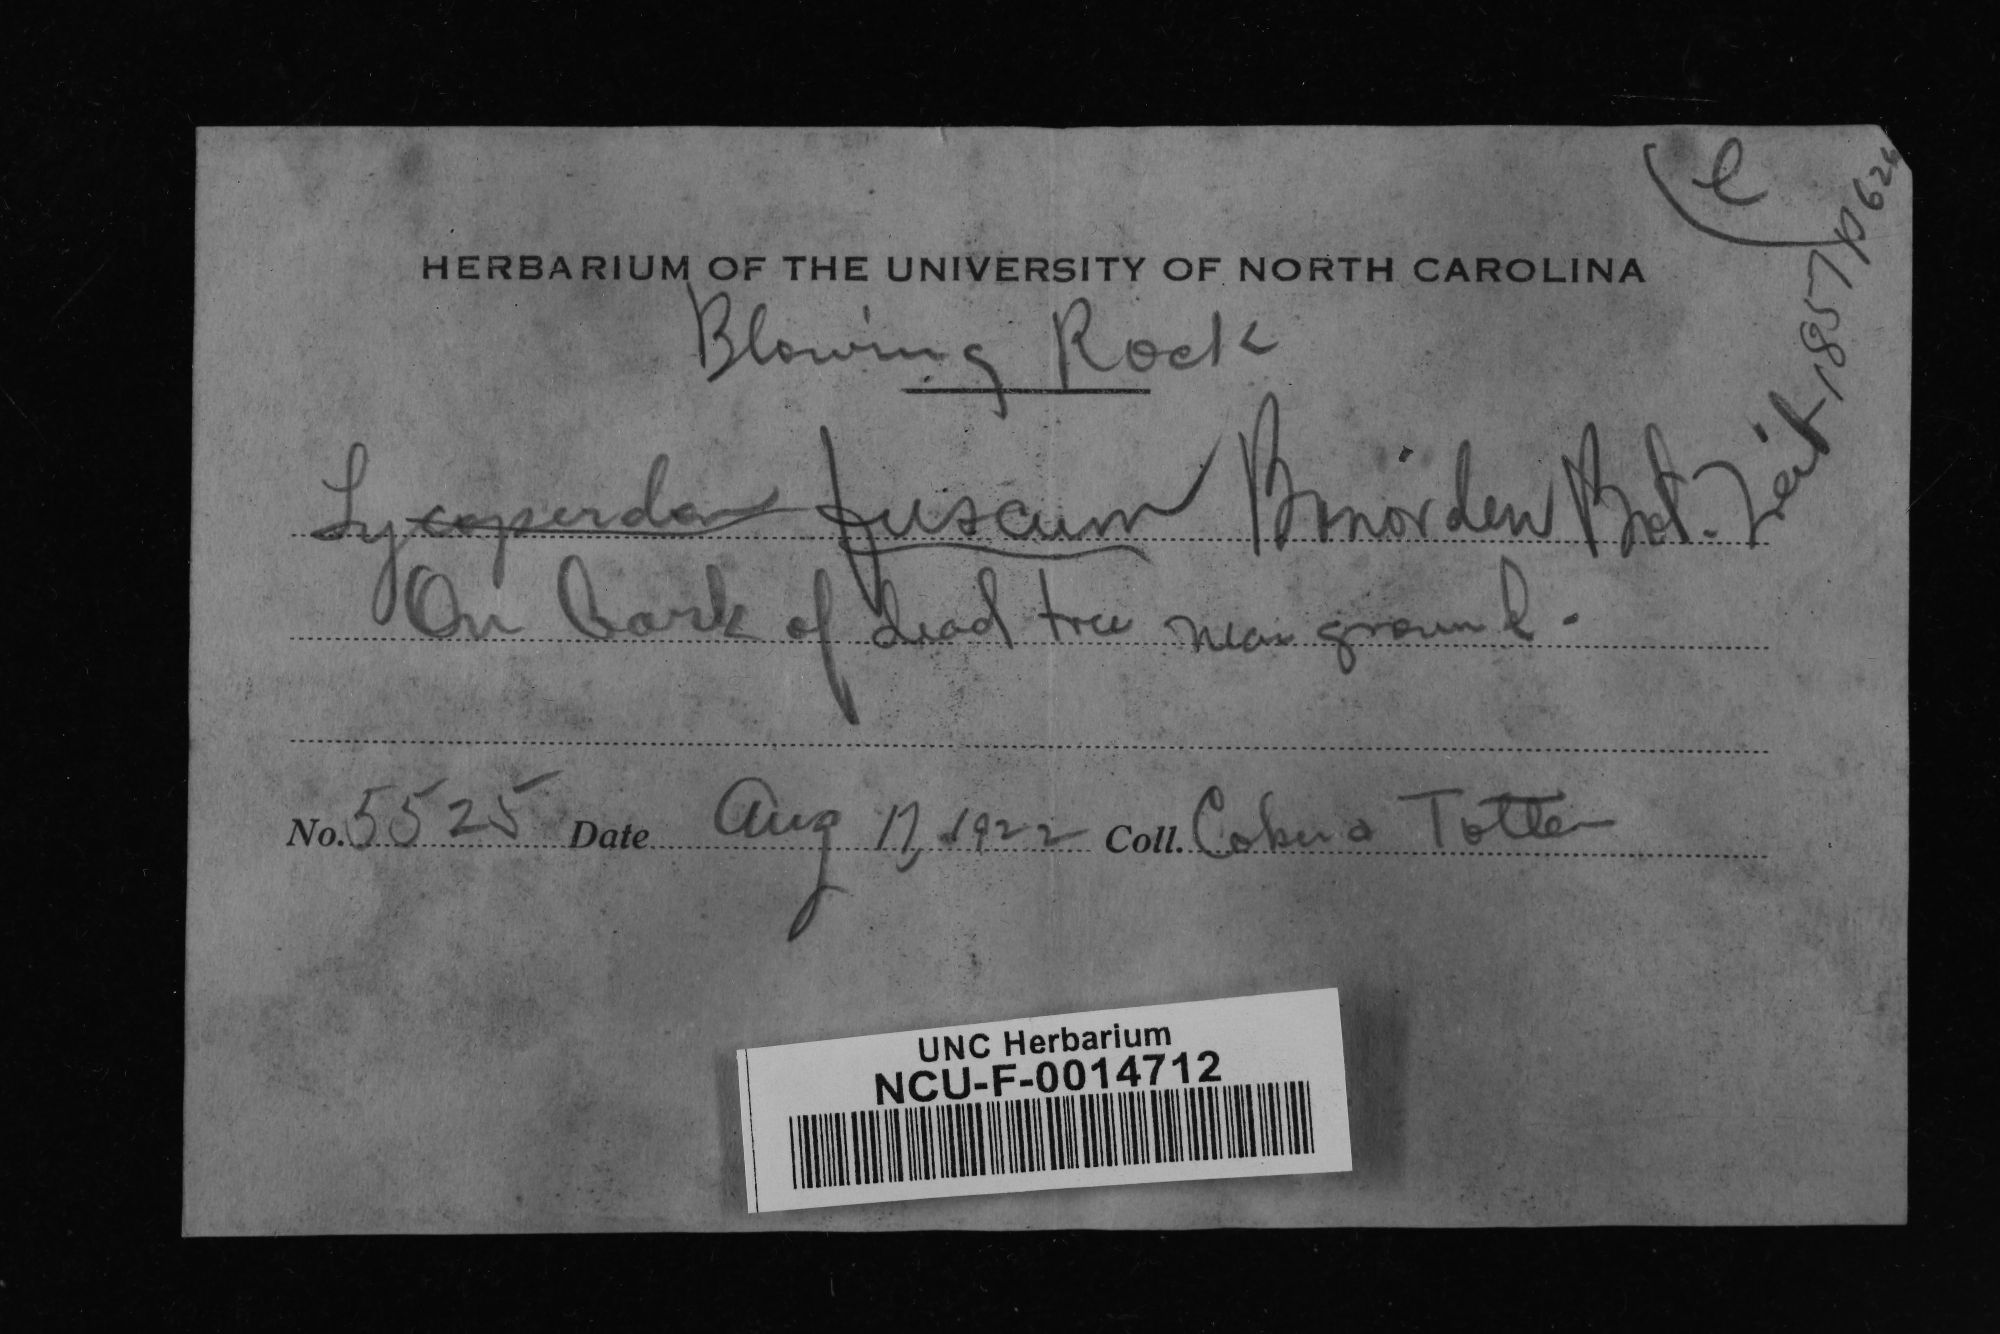 e
HERBARIUM OF THE UNIVERSITY OF NORTH CAROLINA
Blowing Rock
Lycoperdon fuscum Bonorden Bot. Zeit 1857 p 626
On bark of dead tree near ground.
No. 5525 Date Aug 17, 1922 Coll. Coker & Totten
UNC Herbarium
NCU-F-0014712